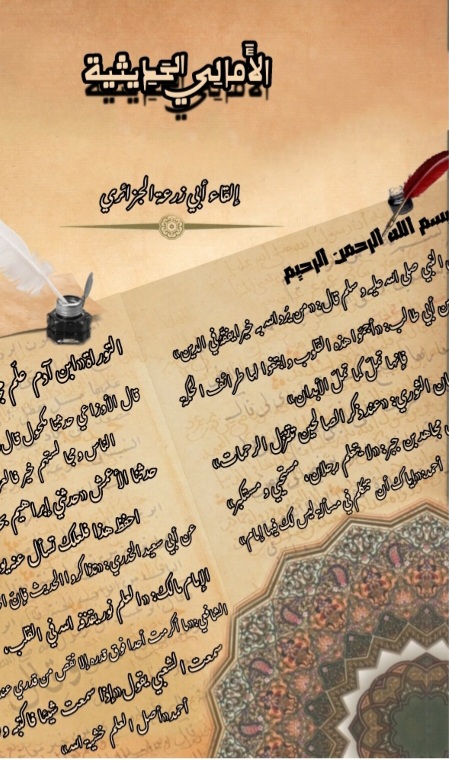 الأَمَالِي الحَدِيثِيَّة
إلقاء أبي زرعة الجزائري
بسم الله الرحمن الرحيم
النبي صلى الله عليه و سلم قال: «من يُرد الله به خيرا يفقهه في الدين»
بن أبي طالب: «أجمّوا هذه القلوب و ابتغوا لها طرائف الحكمة
فإنها تملّ كما تملّ الأبدان»
ان الثوري: «عند ذكر الصالحين تتنزل الرحمات»
مجاهد بن جبر: «لا يتعلم رجلان، مستحيي و مستكبر»
أحمد: «إياك أن تتكلم في مسألة ليس لك فيها إمام»
التوراة «ابن آدم علّم
قال الأوزاعي حدثنا مكحول قال
الناس و بما لستم خير
حدثنا الأعمش «حدثني إبراهيم
احفظ هذا فلعلك تسأل عنه
عن أبي سعيد الخدري: «تذاكروا الحديث فإنّ
الإمام مالك: «العلم نور يقذفه الله في القلب،
الشافعي: «ما أكرمت أحدا فوق قدره إلا نقص من قدري عند
سمعت الشعبي يقول «إذا سمعت شيئا فاكتبه و
أحمد «أصل العلم خشية الله»